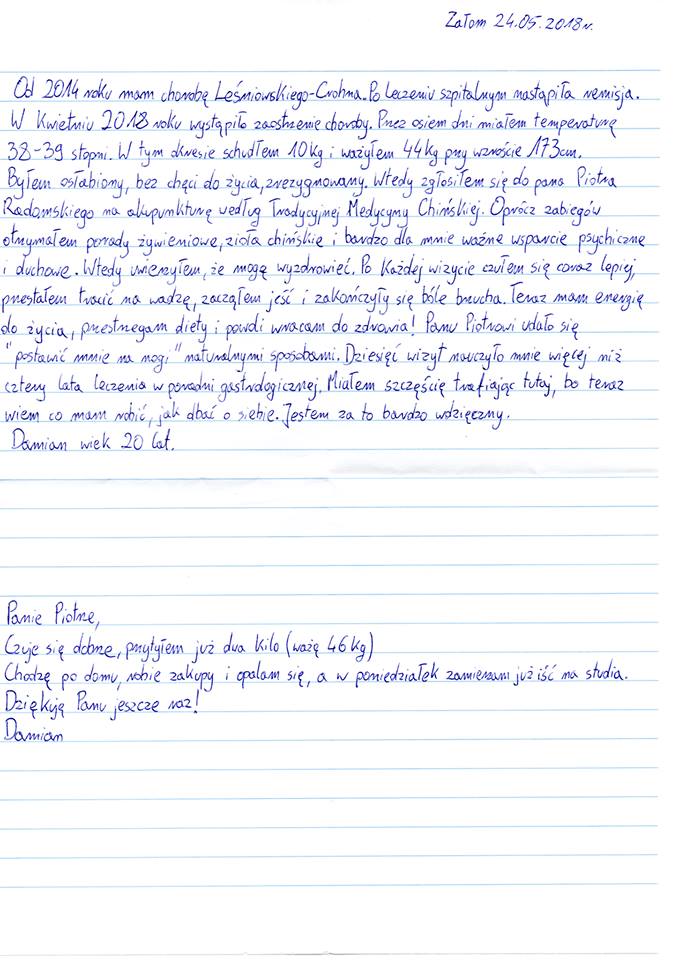 Załom 24.05.2018r.
Od 2014 roku mam chorobę Leśniowskiego-Crohna. Po leczeniu szpitalnym nastąpiła remisja.
W Kwietniu 2018 roku wystąpiło zaostrzenie choroby. Przez osiem dni miałem temperaturę
38-39 stopni. W tym okresie schudłem 10kg i ważyłem 44kg przy wzroście 173cm.
Byłem osłabiony, bez chęci do życia, zrezygnowany. Wtedy zgłosiłem się do pana Piotra
Radomskiego na akupunkturę według Tradycyjnej Medycyny Chińskiej. Oprócz zabiegów
otrzymałem porady żywieniowe, zioła chińskie i bardzo dla mnie ważne wsparcie psychiczne
i duchowe. Wtedy uwierzyłem, że mogę wyzdrowieć. Po każdej wizycie czułem się coraz lepiej,
przestałem tracić na wadzę, zacząłem jeść i zakończyły się bóle brzucha. Teraz mam energię
do życia, przestrzegam diety i powoli wracam do zdrowia! Panu Piotrowi udało się
"postawić mnie na nogi" naturalnymi sposobami. Dziesięć wizyt nauczyło mnie więcej niż
cztery lata leczenia w poradni gastrologicznej. Miałem szczęście trafiając tutaj, bo teraz
wiem co mam robić, jak dbać o siebie. Jestem za to bardzo wdzięczny.
Damian wiek 20 lat.
Panie Piotrze,
Czuje się dobrze, przytyłem już dwa kilo (ważę 46kg)
Chodzę po domu, robie zakupy i opalam się, a w poniedziałek zamierzam już iść na studia.
Dziękuję Panu jeszcze raz!
Damian